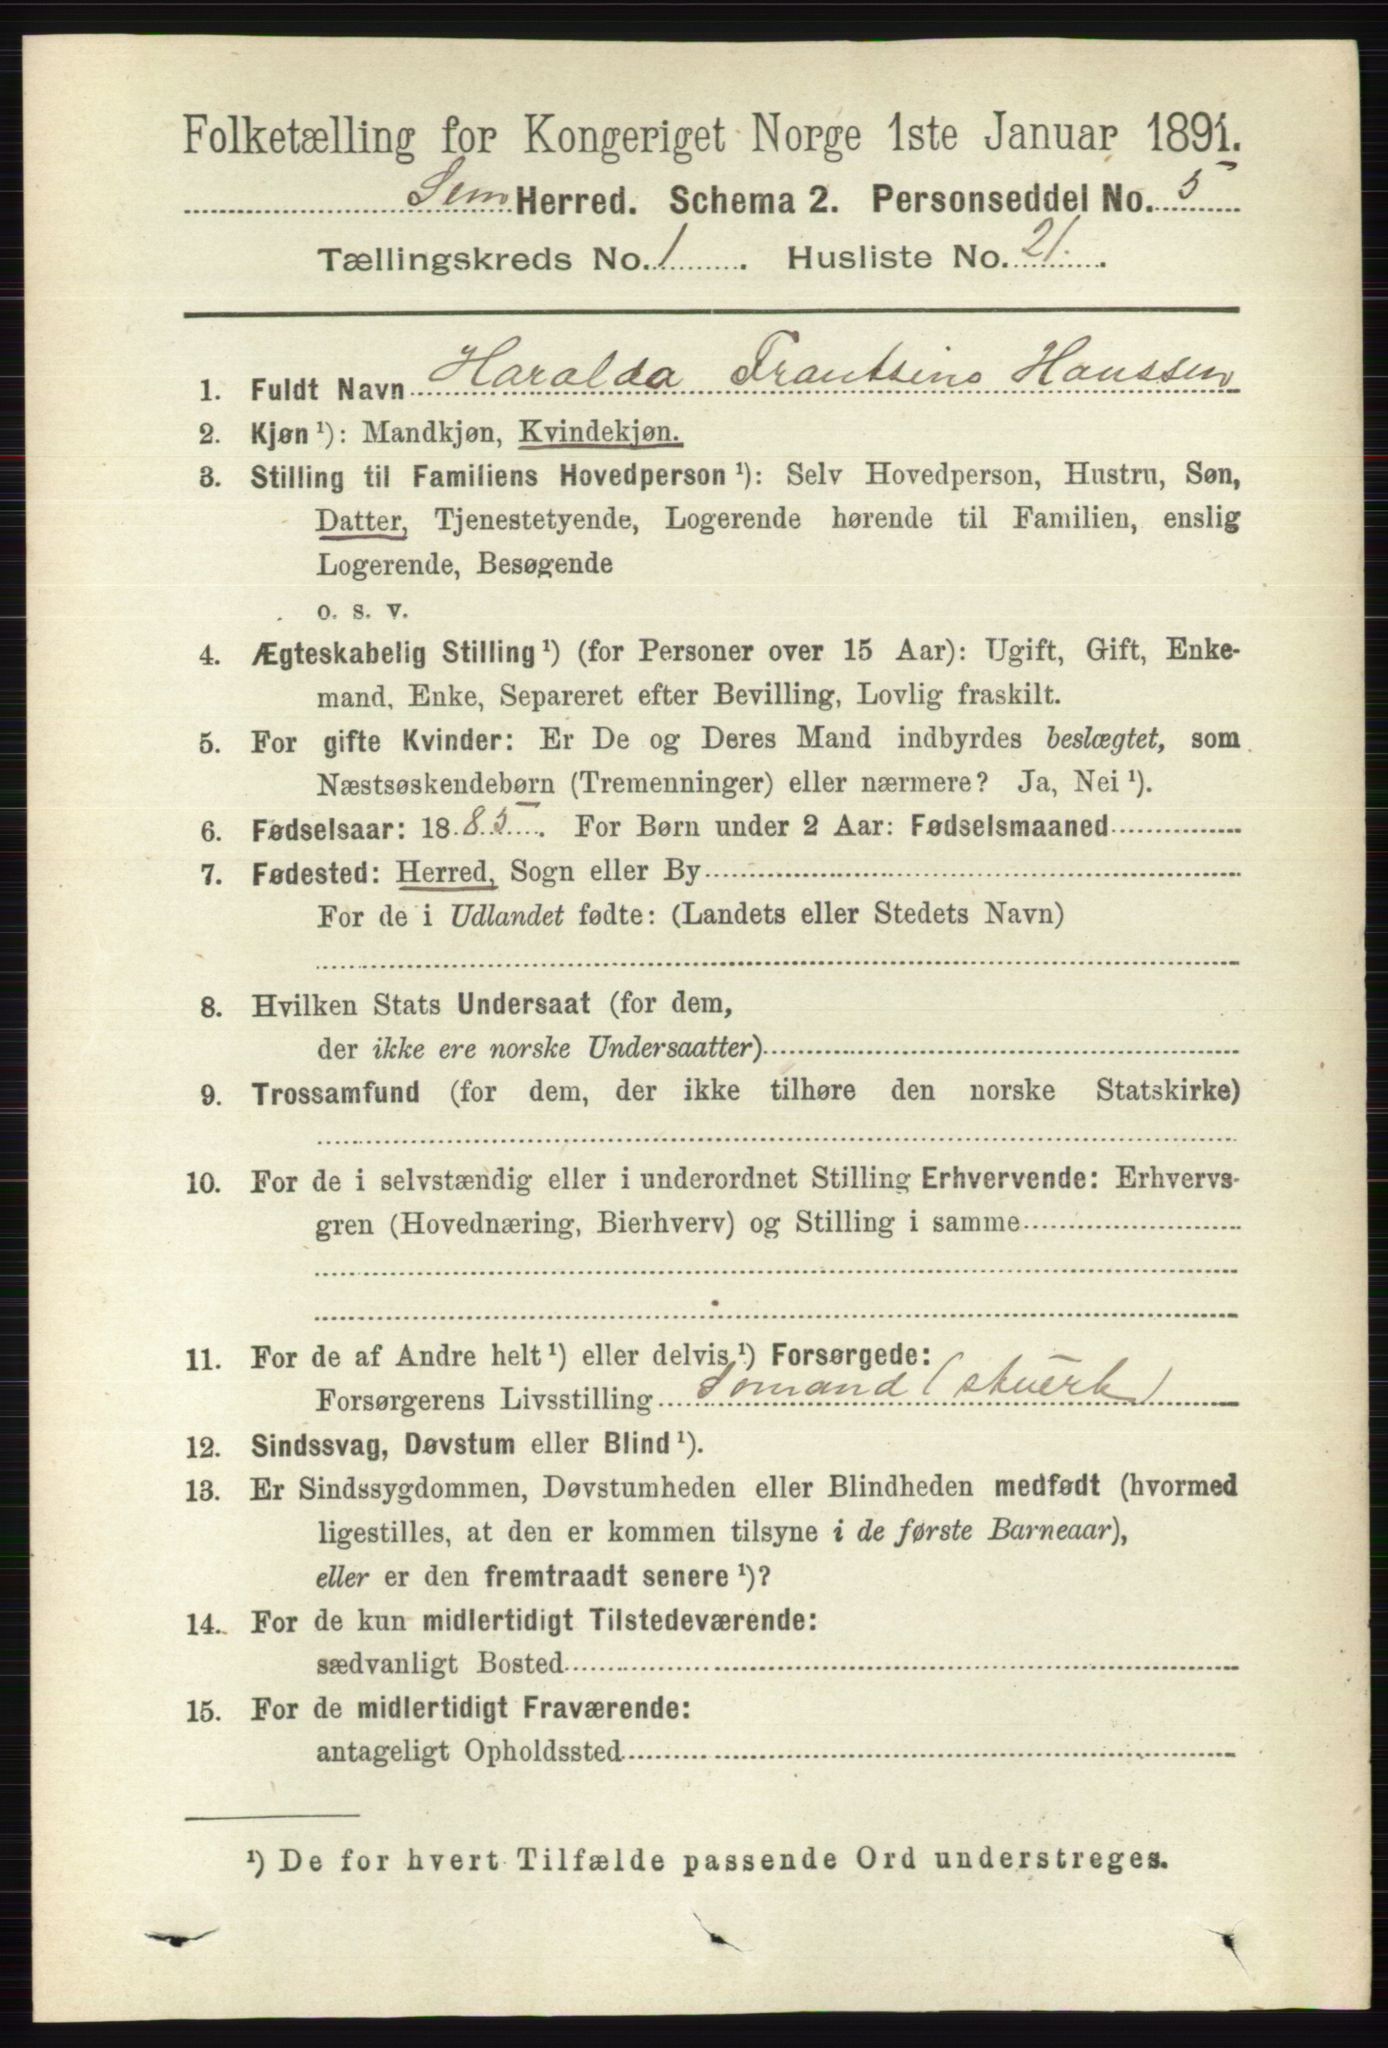 Folketælling for Kongeriget Norge 1ste Januar 1891.
Sem Herred. Schema 2. Personseddel No. 5
Tællingskreds No. 1. Husliste No. 21.
1. Fuldt Navn Haralda Frantsine Hanssen
2. Kjøn ¹): Mandkjøn, Kvindekjøn.
3. Stilling til Familiens Hovedperson ¹): Selv Hovedperson, Hustru, Søn,
Datter, Tjenestetyende, Logerende hørende til Familien, enslig
Logerende, Besøgende
o. s. v.
4. Ægteskabelig Stilling ¹) (for Personer over 15 Aar): Ugift, Gift, Enke-
mand, Enke, Separeret efter Bevilling, Lovlig fraskilt.
5. For gifte Kvinder: Er De og Deres Mand indbyrdes beslægtet, som
Næstsøskendebørn (Tremenninger) eller nærmere? Ja, Nei ¹).
6. Fødselsaar: 1885. For Børn under 2 Aar: Fødselsmaaned
7. Fødested: Herred, Sogn eller By
For de i Udlandet fødte: (Landets eller Stedets Navn)
8. Hvilken Stats Undersaat (for dem,
der ikke ere norske Undersaatter)
9. Trossamfund (for dem, der ikke tilhøre den norske Statskirke)
10. For de i selvstændig eller i underordnet Stilling Erhvervende: Erhvervs-
gren (Hovednæring, Bierhverv) og Stilling i samme
11. For de af Andre helt ¹) eller delvis ¹) Forsørgede:
Forsørgerens Livsstilling Sømand
12. Sindssvag, Døvstum eller Blind ¹).
13. Er Sindssygdommen, Døvstumheden eller Blindheden medfødt (hvormed
ligestilles, at den er kommen tilsyne i de første Barneaar),
eller er den fremtraadt senere ¹)?
14. For de kun midlertidigt Tilstedeværende:
sædvanligt Bosted
15. For de midlertidigt Fraværende:
antageligt Opholdssted
¹) De for hvert Tilfælde passende Ord understreges.